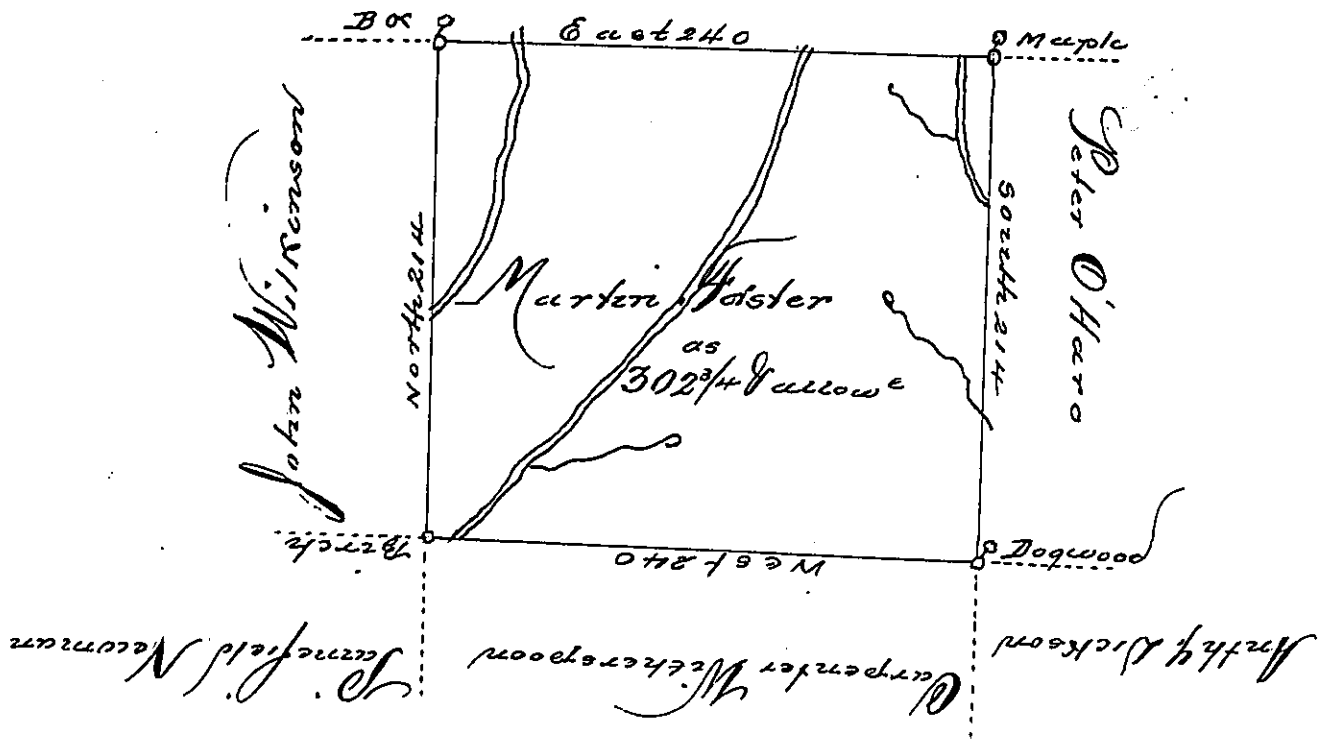 BO
East 240
Maple
John Wilkinson
North 214
Martin Foister
as
302 3/4 & allow e
South 214
Peter O'Haro
Birch
West 240
Dogwood
Newman
Carpenter Witherspoon
Anthy. Dickson